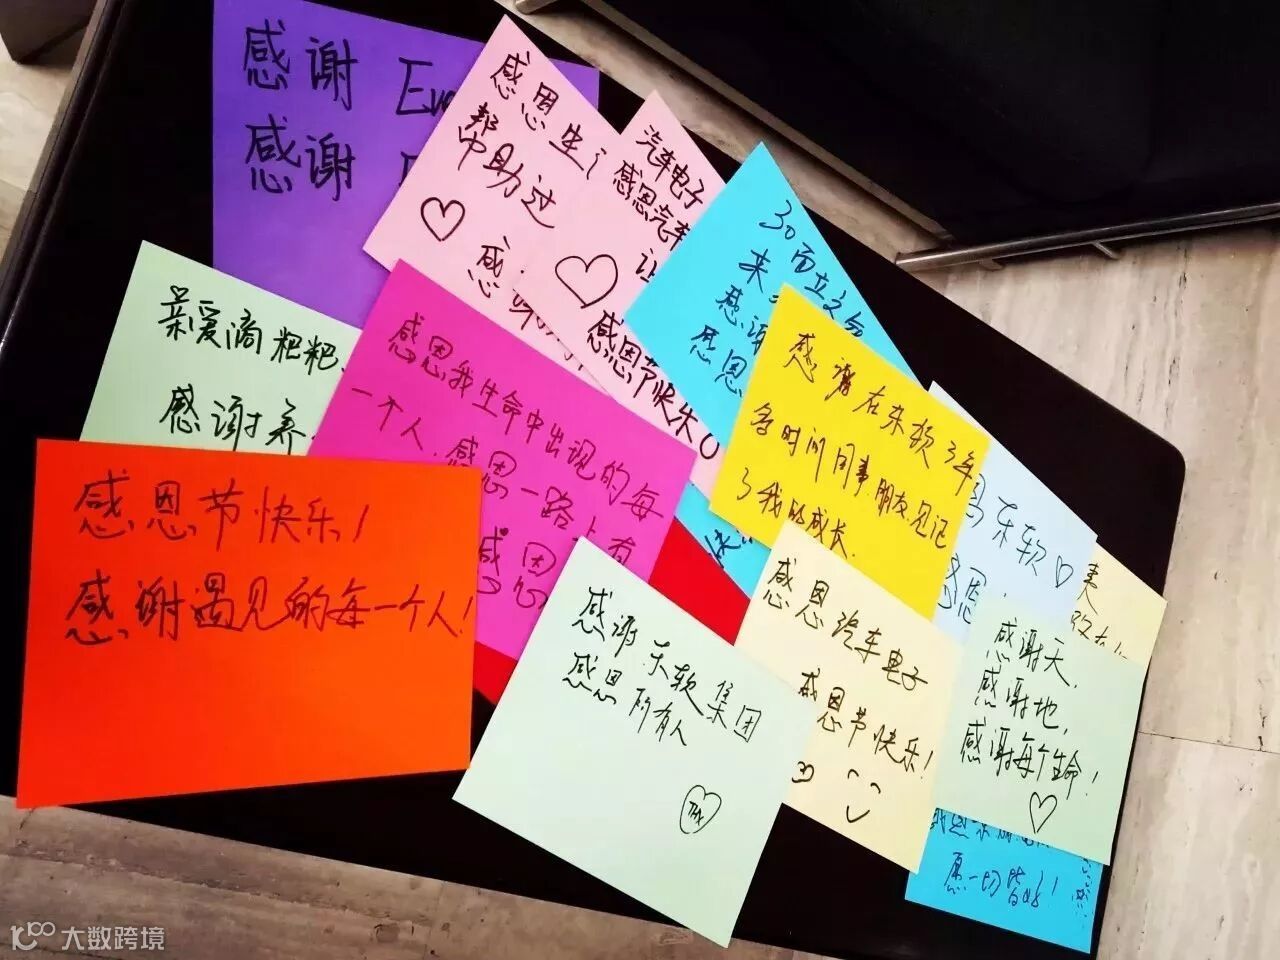 感谢
感谢
感恩生
帮助过
感
汽车电子
感恩汽车
让
感恩节快乐
30而立
来
感谢
感恩
亲爱滴粑粑、
感谢养
感恩我生命中出现的每
一个人.感恩一路上有
感恩
感谢在东软3年
各时间同事朋友见证
了我的成长.
东软
感恩节快乐!
感谢遇见的每一个人!
感谢东软集团
感恩所有人
THX
感恩汽车电子
感恩节快乐!
来
感谢天,
感谢地,
感谢每个生命!
愿一切皆好!
大数跨境